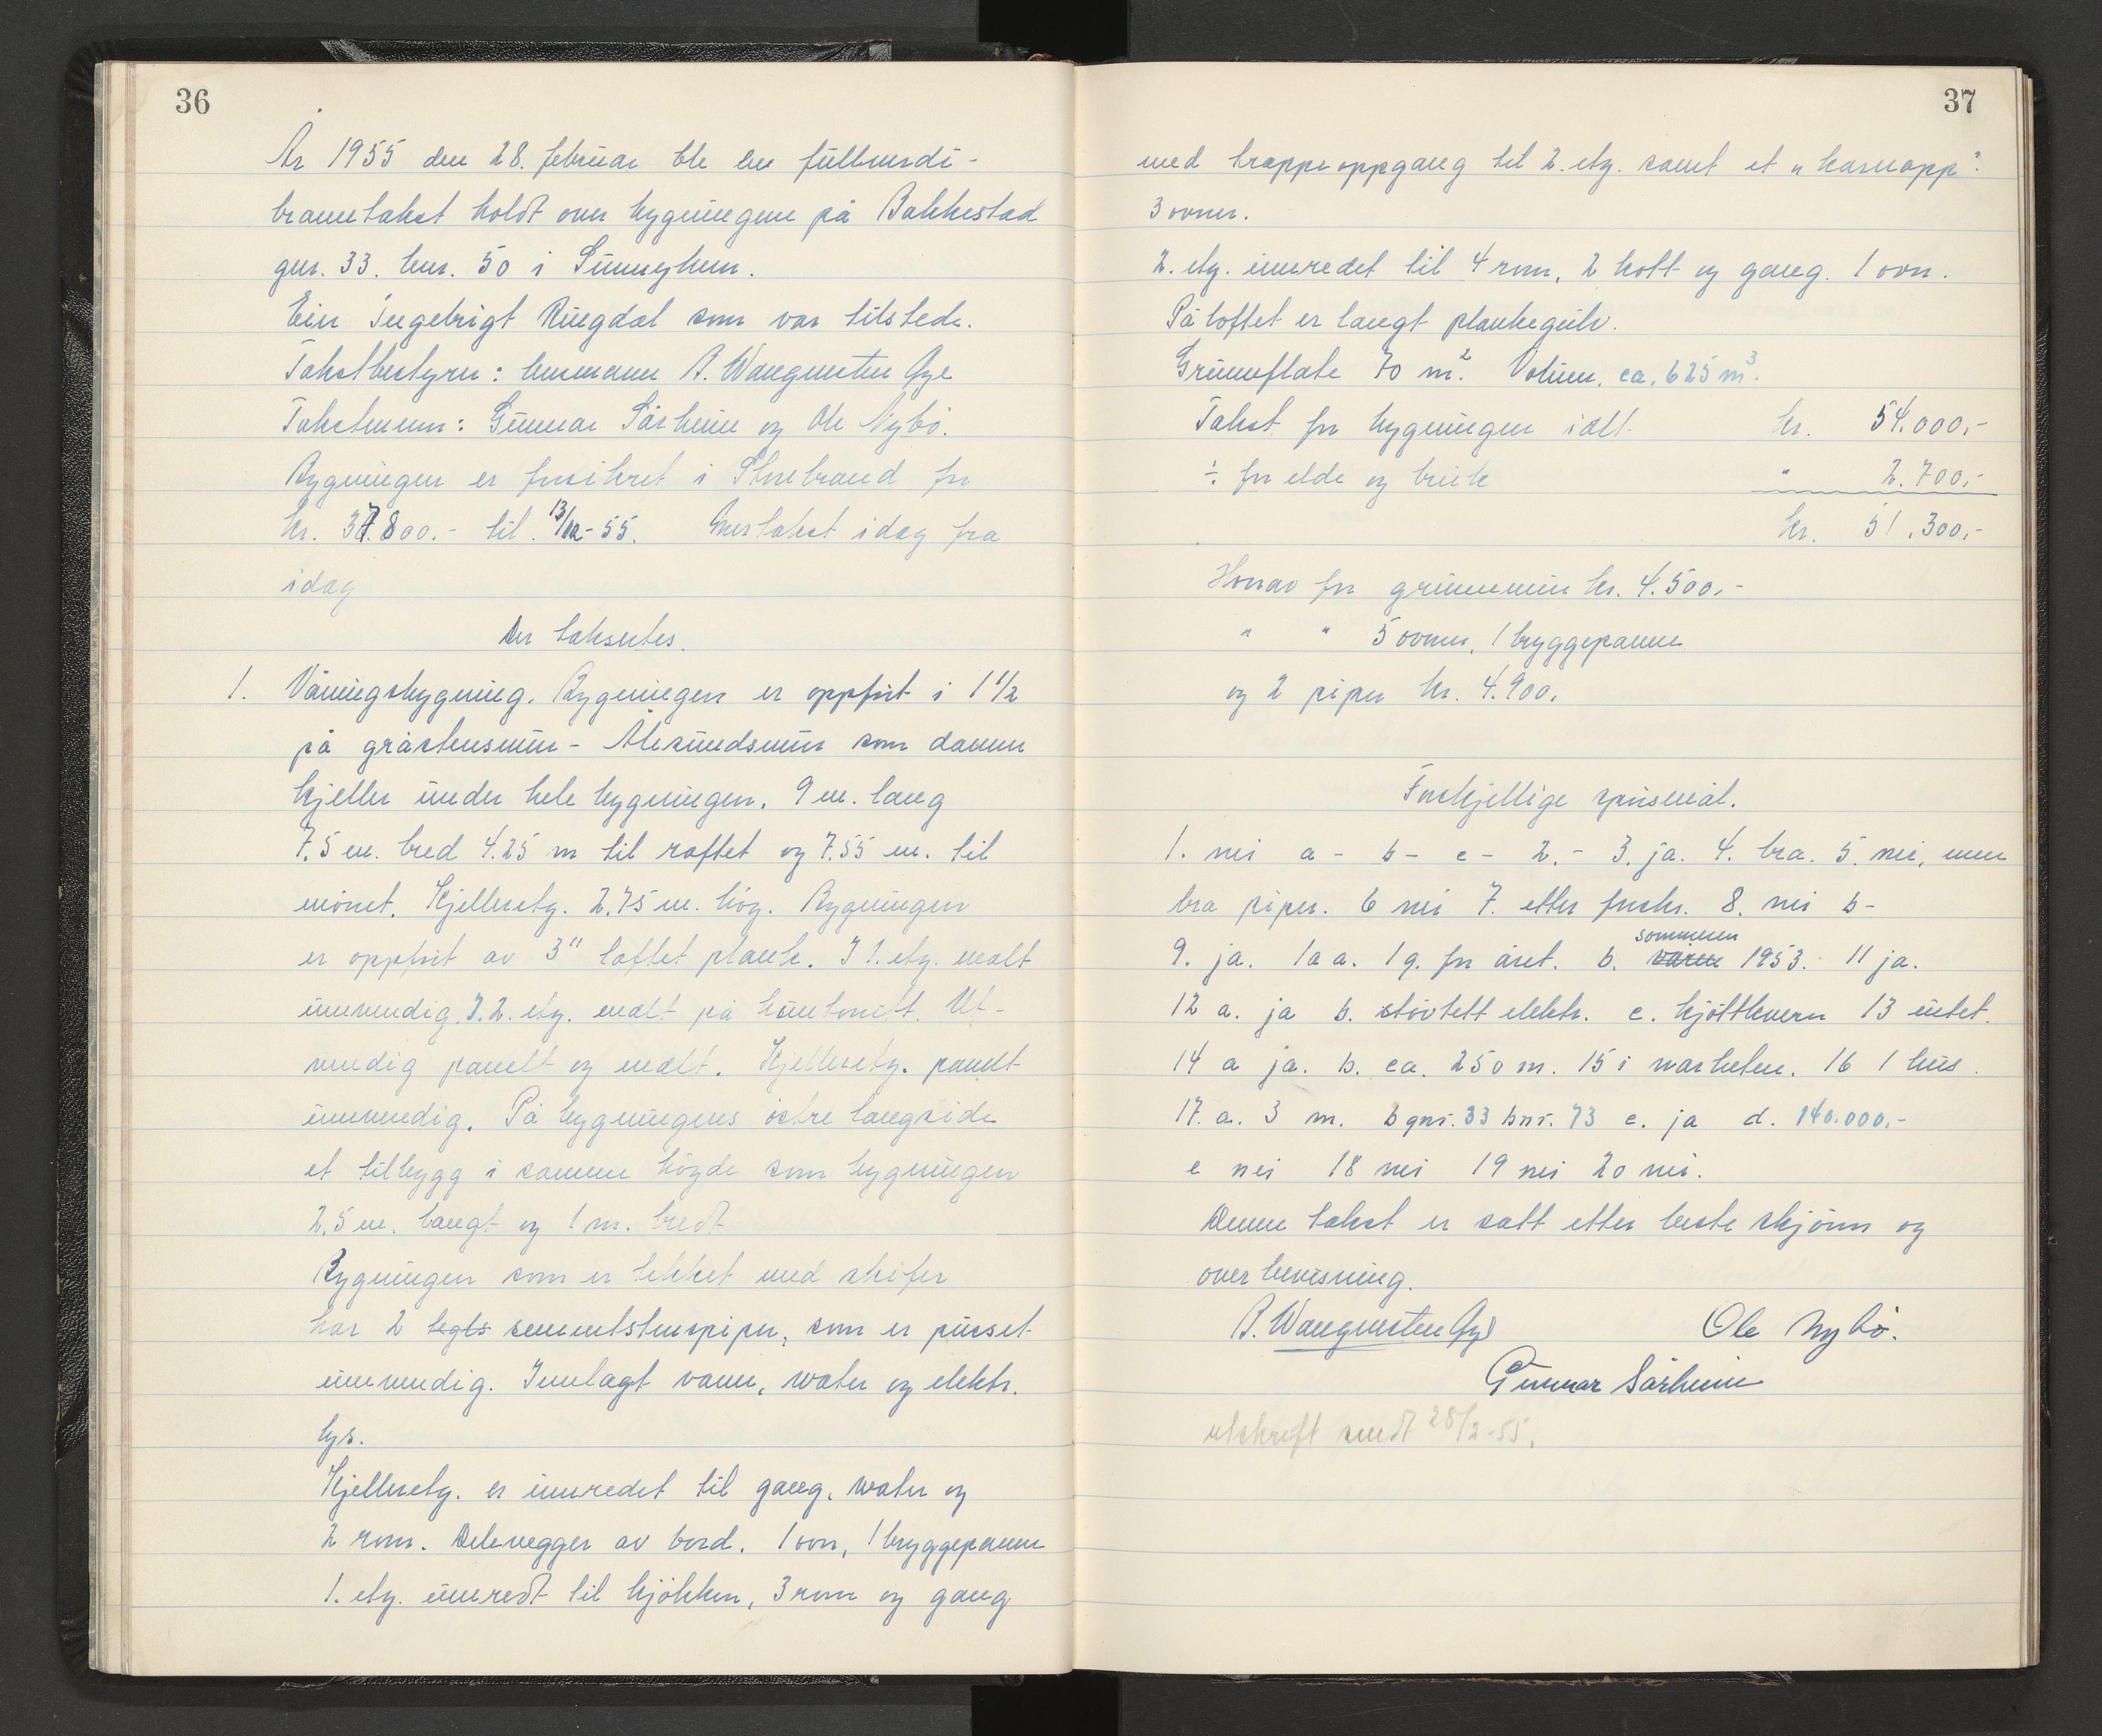 36
År 1955 den 28. februar ble en fullverdi-
branntakst holdt over bygningene på Bakkestad
gnr. 33. bnr. 50 i Sunnylven.
Eier Ingebrigt Ringdal som var tilstede.
Takstbestyrer: lensmann A. Wangensten Gye
Takstmenn: Gunnar Sårheim og Ole Nybö.
Bygningen er forsikret i Storebrand for
kr. 37.800.- til 13/12-55. Omtakst idag fra
idag
Der takseres.
1. Våningsbygning. Bygningen er oppfört i 1 1/2
på gråstensmur - Ålesundsmur som danner
kjeller under hele bygningen. 9 m. lang
7.5 m. bred 4.25 m til raftet og 7.55 m. til
mönet. Kjelleretg. 2,75 m. hög. Bygningen
er oppfört av 3" laftet plank. I 1. etg. malt
innvendig. I. 2. etg. malt på huntonitt. Ut-
vendig panelt og malt. Kjelleretg. panelt
innvendig. På bygningens östre langside
et tilbygg i samme högde som bygningen
2,5 m. langt og 1 m. bredt
Bygningen som er tekket med skifer
har 2 tegls sementstenspiper, som er pusset
innvendig. Innlagt vann, water og elektr.
lys.
Kjelleretg. er innredet til gang, water og
2 rom. Delevegger av bord. 1 ovn, 1 bryggepanne
1. etg. innredt til kjökken, 3 rom og gang
37
med trappeoppgang til 2. etg. samt et „karnapp".
3 ovner.
2. etg. innredet til 4 rom, 2 kott og gang. 1 ovn.
På loftet er langt plankegulv.
Grunnflate 70 m². Volum. ca. 625 m³.
Takst for bygningen ialt kr. 54.000,-
÷ for elde og bruk " 2.700,-
kr. 51.300,-
Herav for grunnmur kr. 4.500,-
" " 5 ovner, 1 bryggepanne
og 2 piper kr. 4.900,
Forskjellige spörsmål.
1. nei a - b - c - 2. - 3. ja. 4. bra. 5. nei, men
bra piper. 6 nei 7. etter forskr. 8. nei b -
sommeren
9. ja. 10 a. 1 g. for året. b. våren 1953. 11 ja.
12 a. ja b. stövtett elektr. c. kjöttkvern 13 intet.
14 a ja. b. ca. 250 m. 15 i nærheten. 16 1 hus.
17. a. 3 m. b gnr. 33 bnr. 73 c. ja d. 140.000.-
e nei 18 nei 19 nei 20 nei.
Denne takst er satt etter beste skjönn og
overbevisning.
A. Wangensten Gye Ole Nybö.
Gunnar Sårheim
utskrift sendt 28/2-55.